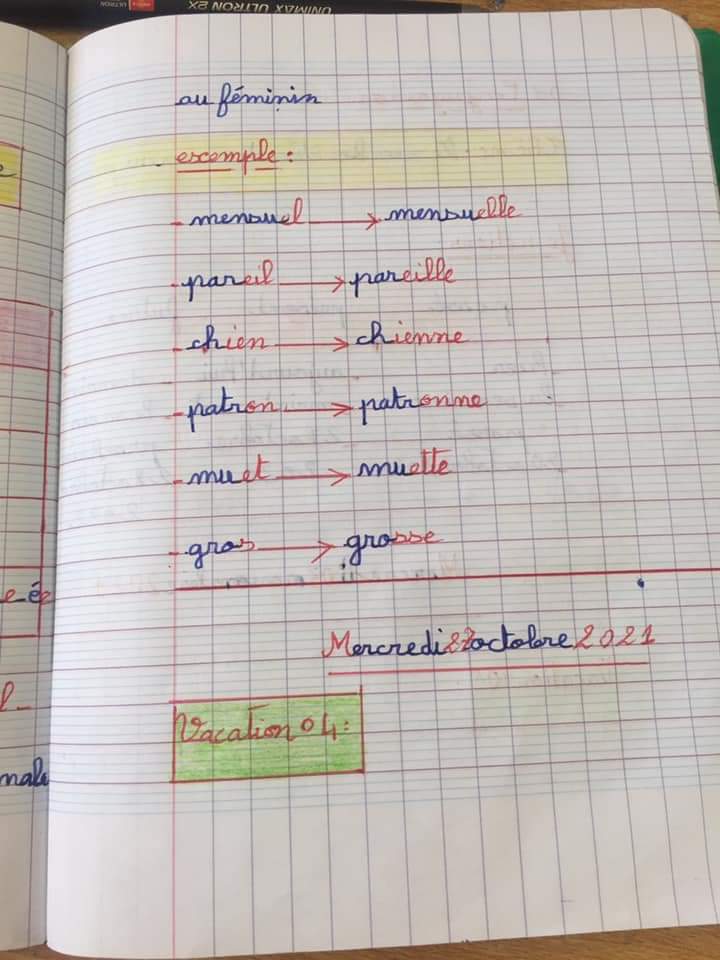 UNIMAX ULTRON 2X
au féminin
exemple :
- mensuel → mensuelle
- pareil → pareille
- chien → chienne
- patron → patronne
- muet → muette
- gros → grosse
Mercredi 27 octobre 2021
Vacation 04 :
e ée
l_
male